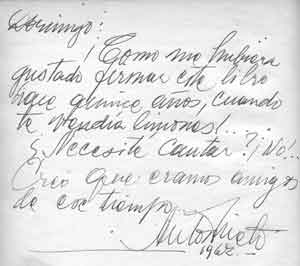 Domingo:
¡Como me hubiera
gustado firmar ese libro
hace quince años, cuando
te vendía limones!...
¿Necesita cantar? ¡No!...
Creo que eramos amigos
de ese tiempo
1962.